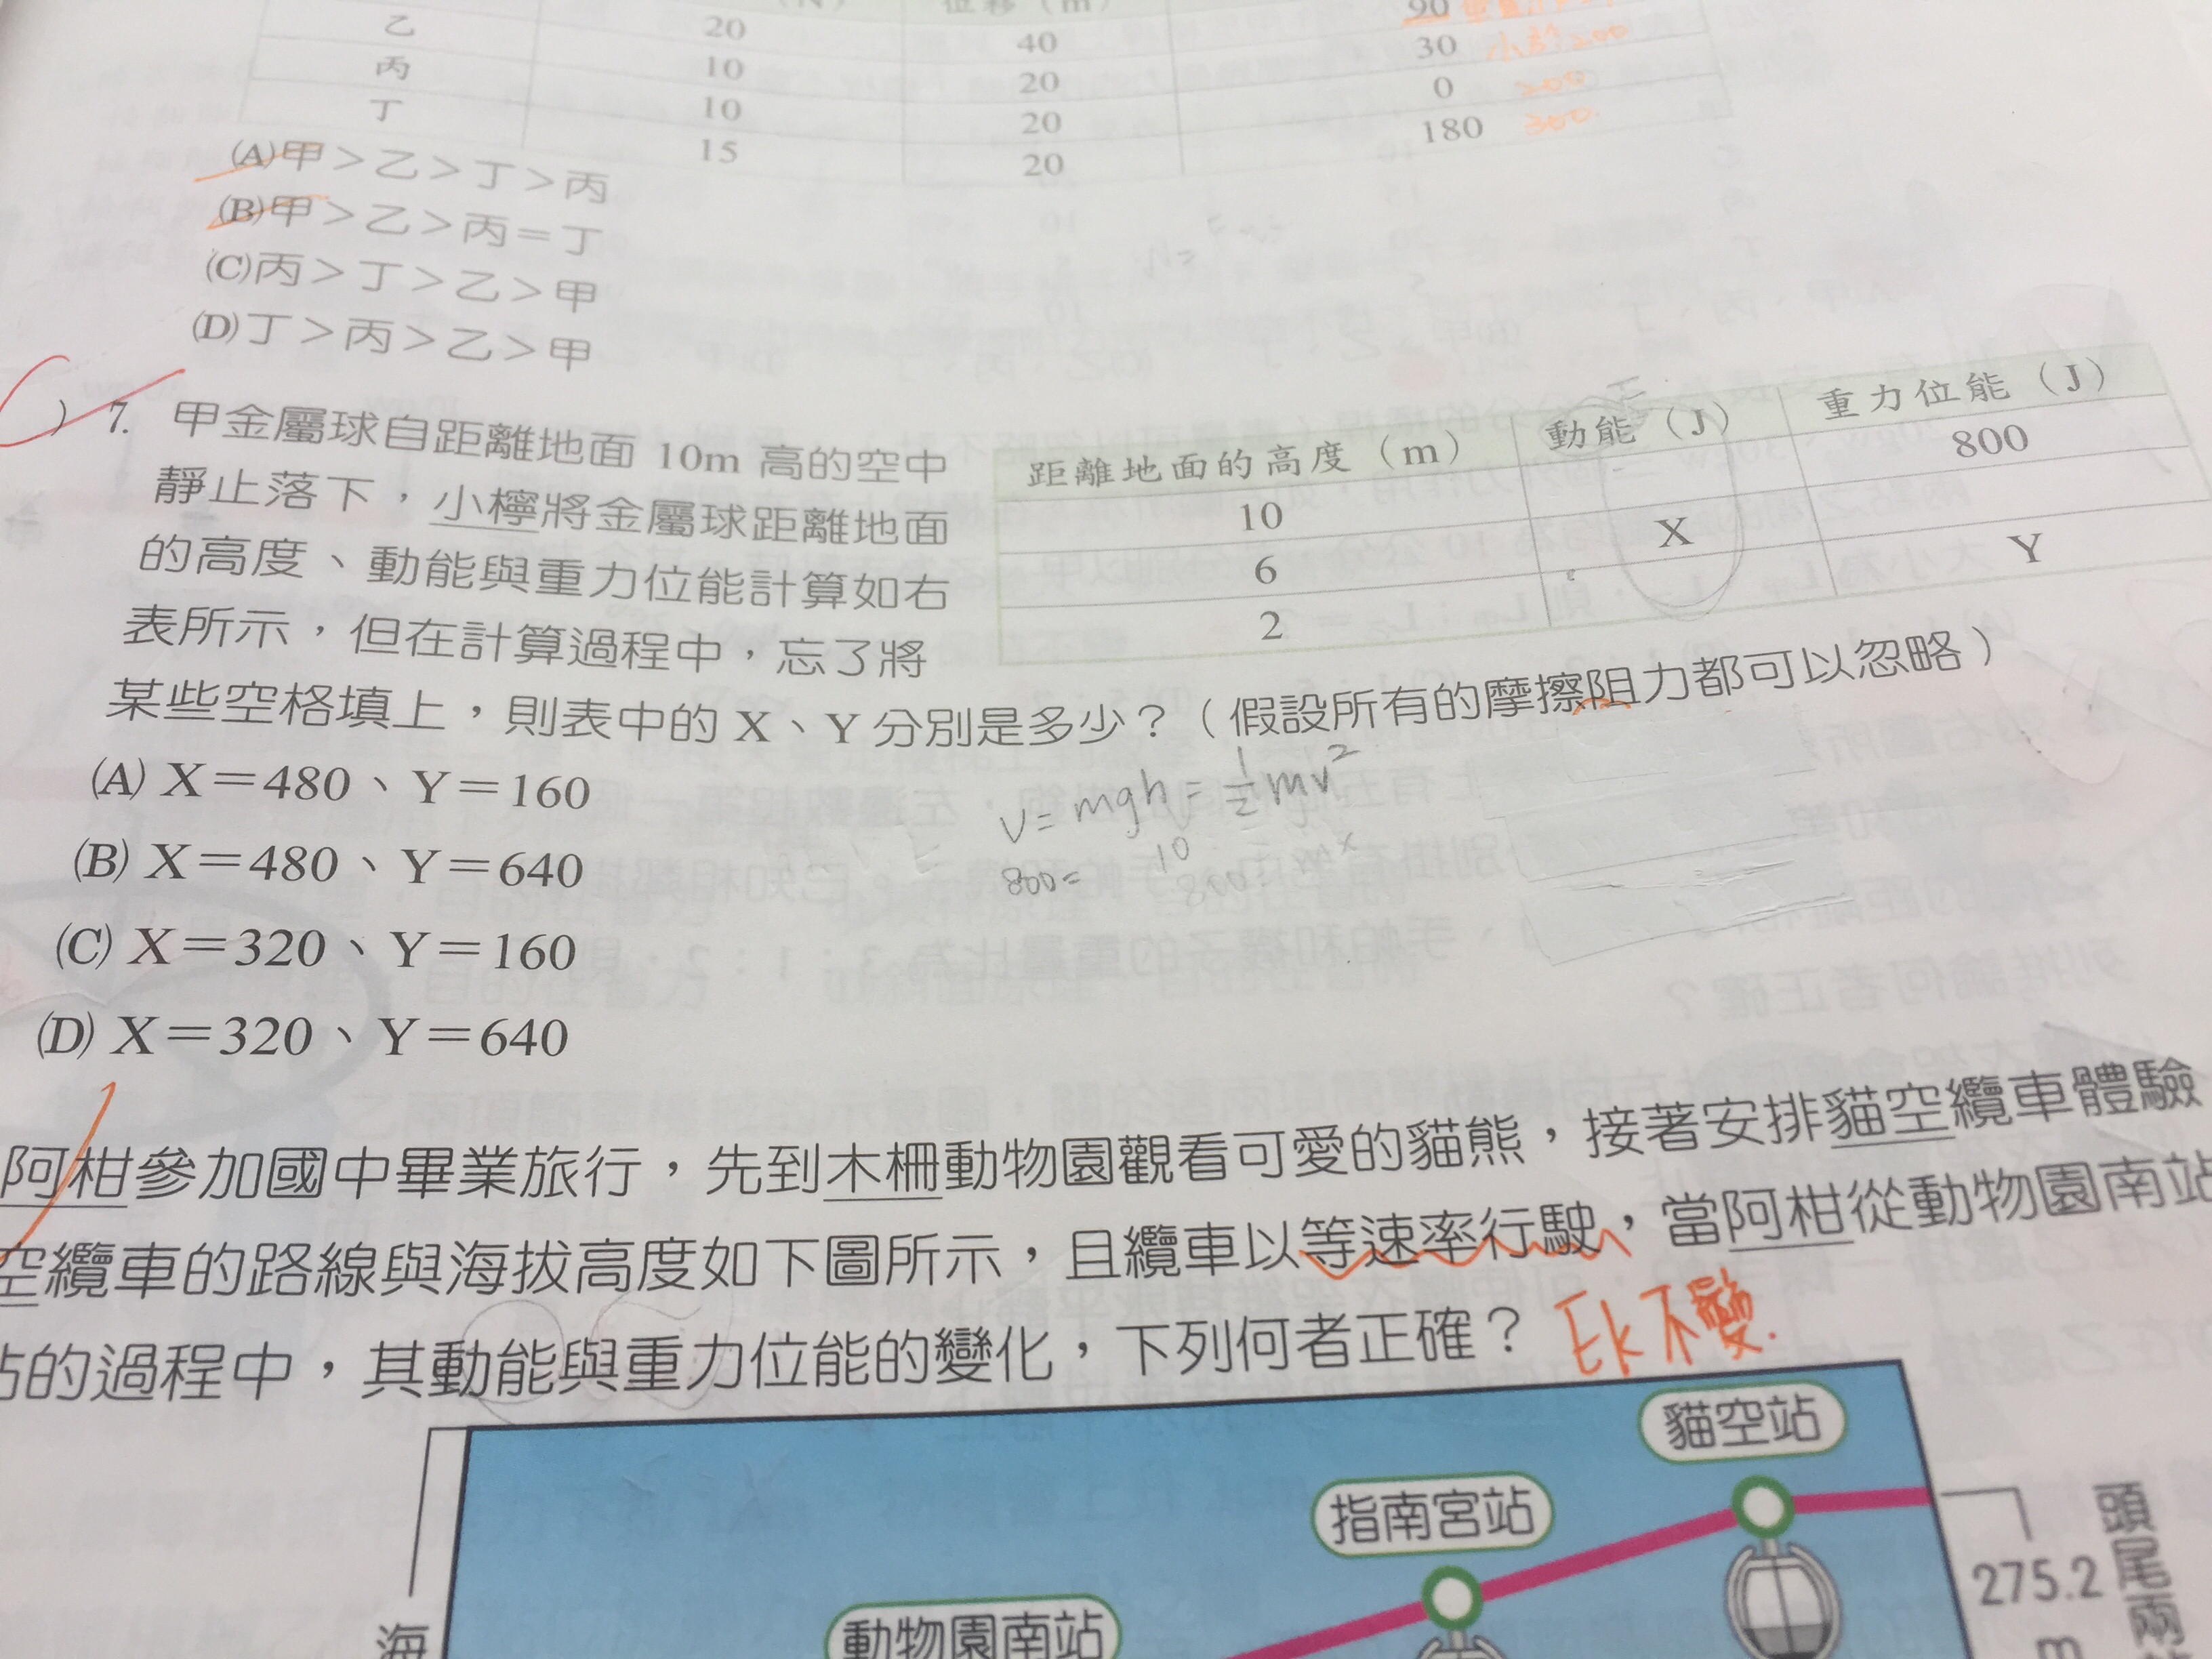 位移（m）
90
乙 20 40 30 小於200
丙 10 20 0 200
丁 10 20 180 300
15 20
(A)甲＞乙＞丁＞丙
(B)甲＞乙＞丙＝丁
(C)丙＞丁＞乙＞甲
(D)丁＞丙＞乙＞甲
）7. 甲金屬球自距離地面 10m 高的空中
靜止落下，小檸將金屬球距離地面
的高度、動能與重力位能計算如右
表所示，但在計算過程中，忘了將
某些空格填上，則表中的 X、Y 分別是多少？（假設所有的摩擦阻力都可以忽略）
距離地面的高度（m） 動能（J） 重力位能（J）
10 800
6 X
2 Y
(A) X＝480、Y＝160
(B) X＝480、Y＝640
(C) X＝320、Y＝160
(D) X＝320、Y＝640
V= mgh = 1/2 mv²
800= 10
阿柑參加國中畢業旅行，先到木柵動物園觀看可愛的貓熊，接著安排貓空纜車體驗
空纜車的路線與海拔高度如下圖所示，且纜車以等速率行駛，當阿柑從動物園南站
站的過程中，其動能與重力位能的變化，下列何者正確？ Ek不變.
貓空站
指南宮站
動物園南站
275.2
m
頭尾兩
海